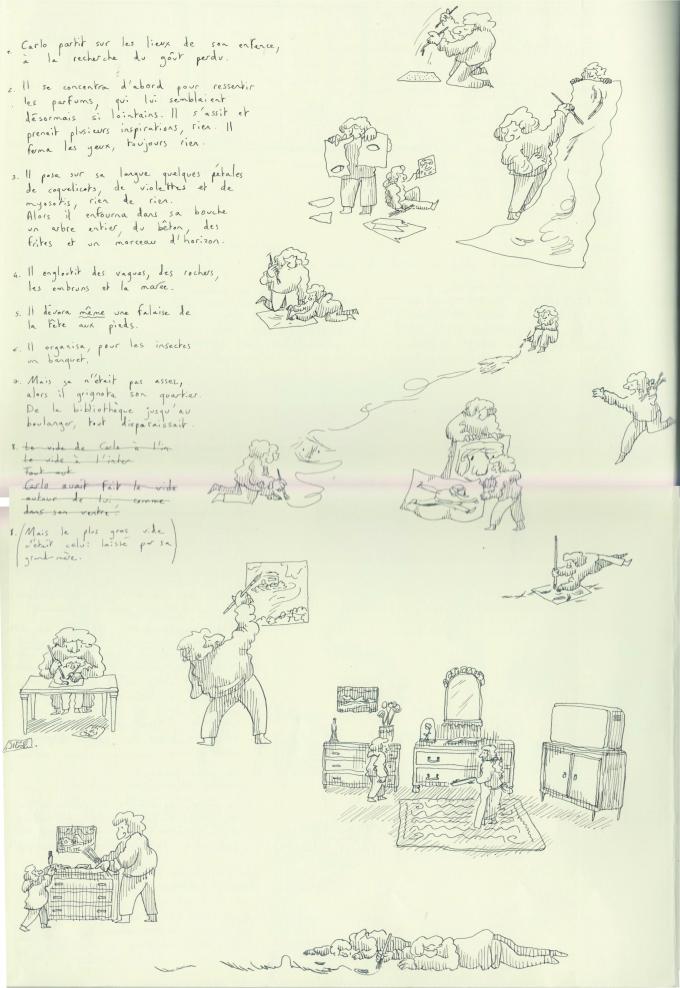 1. Carlo partit sur les lieux de son enfance,
à la recherche du goût perdu.
2. Il se concentra d'abord pour ressentir
les parfums, qui lui semblaient
désormais si lointains. Il s'assit et
prenait plusieurs inspirations, rien. Il
ferma les yeux, toujours rien.
3. Il posa sur sa langue quelques pétales
de coquelicots, de violettes et de
myosotis, rien de rien.
Alors il enfourna dans sa bouche
un arbre entier, du béton, des
frites et un morceau d'horizon.
4. Il engloutit des vagues, des rochers,
les embruns et la marée.
5. Il dévora même une falaise de
la tête aux pieds.
6. Il organisa, pour les insectes
un banquet.
7. Mais ça n'était pas assez,
alors il grignota son quartier.
De la bibliothèque jusqu'au
boulanger, tout disparaissait.
8. Le vide de Carlo à l'in
Le vide à l'inter
Tout aut
Carlo avait fait le vide
autour de lui comme
dans son ventre
8. (Mais le plus gros vide
était celui laissé par sa
grand-mère.)